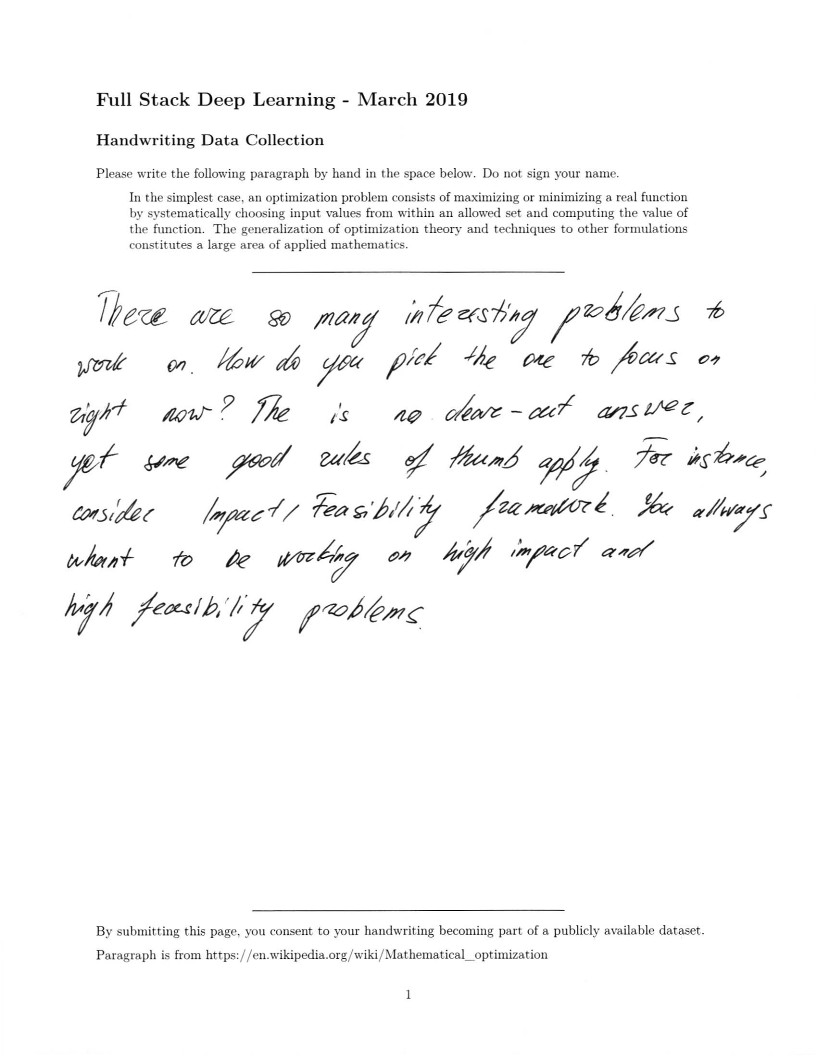 Full Stack Deep Learning - March 2019
Handwriting Data Collection
Please write the following paragraph by hand in the space below. Do not sign your name.
In the simplest case, an optimization problem consists of maximizing or minimizing a real function
by systematically choosing input values from within an allowed set and computing the value of
the function. The generalization of optimization theory and techniques to other formulations
constitutes a large area of applied mathematics.
There are so many interesting problems to
work on. How do you pick the one to focus on
right now? The is no cleare-cut answer,
yet some good rules of thumb apply. For instance,
consider Impact/Feasibility framework. You allways
whant to be working on high impact and
high feasibility problems.
By submitting this page, you consent to your handwriting becoming part of a publicly available dataset.
Paragraph is from https://en.wikipedia.org/wiki/Mathematical_optimization
1